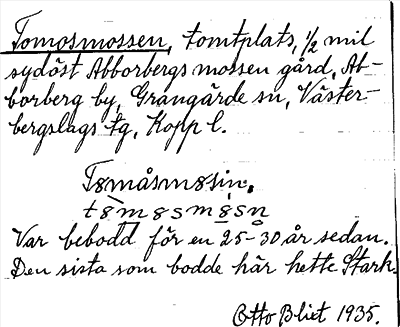 Tomosmossen, tomtplats, 1/2 mil
sydöst Abborbergsmossen gård, Ab-
borberg by, Grangärde sn, Väster-
bergslags tg, Kopp l.
Tȣmåsmȣsin.
tȣmȣsmȣsn
Var bebodd för en 25-30 år sedan.
Den sista som bodde här hette Stark.
Otto Blixt 1935.